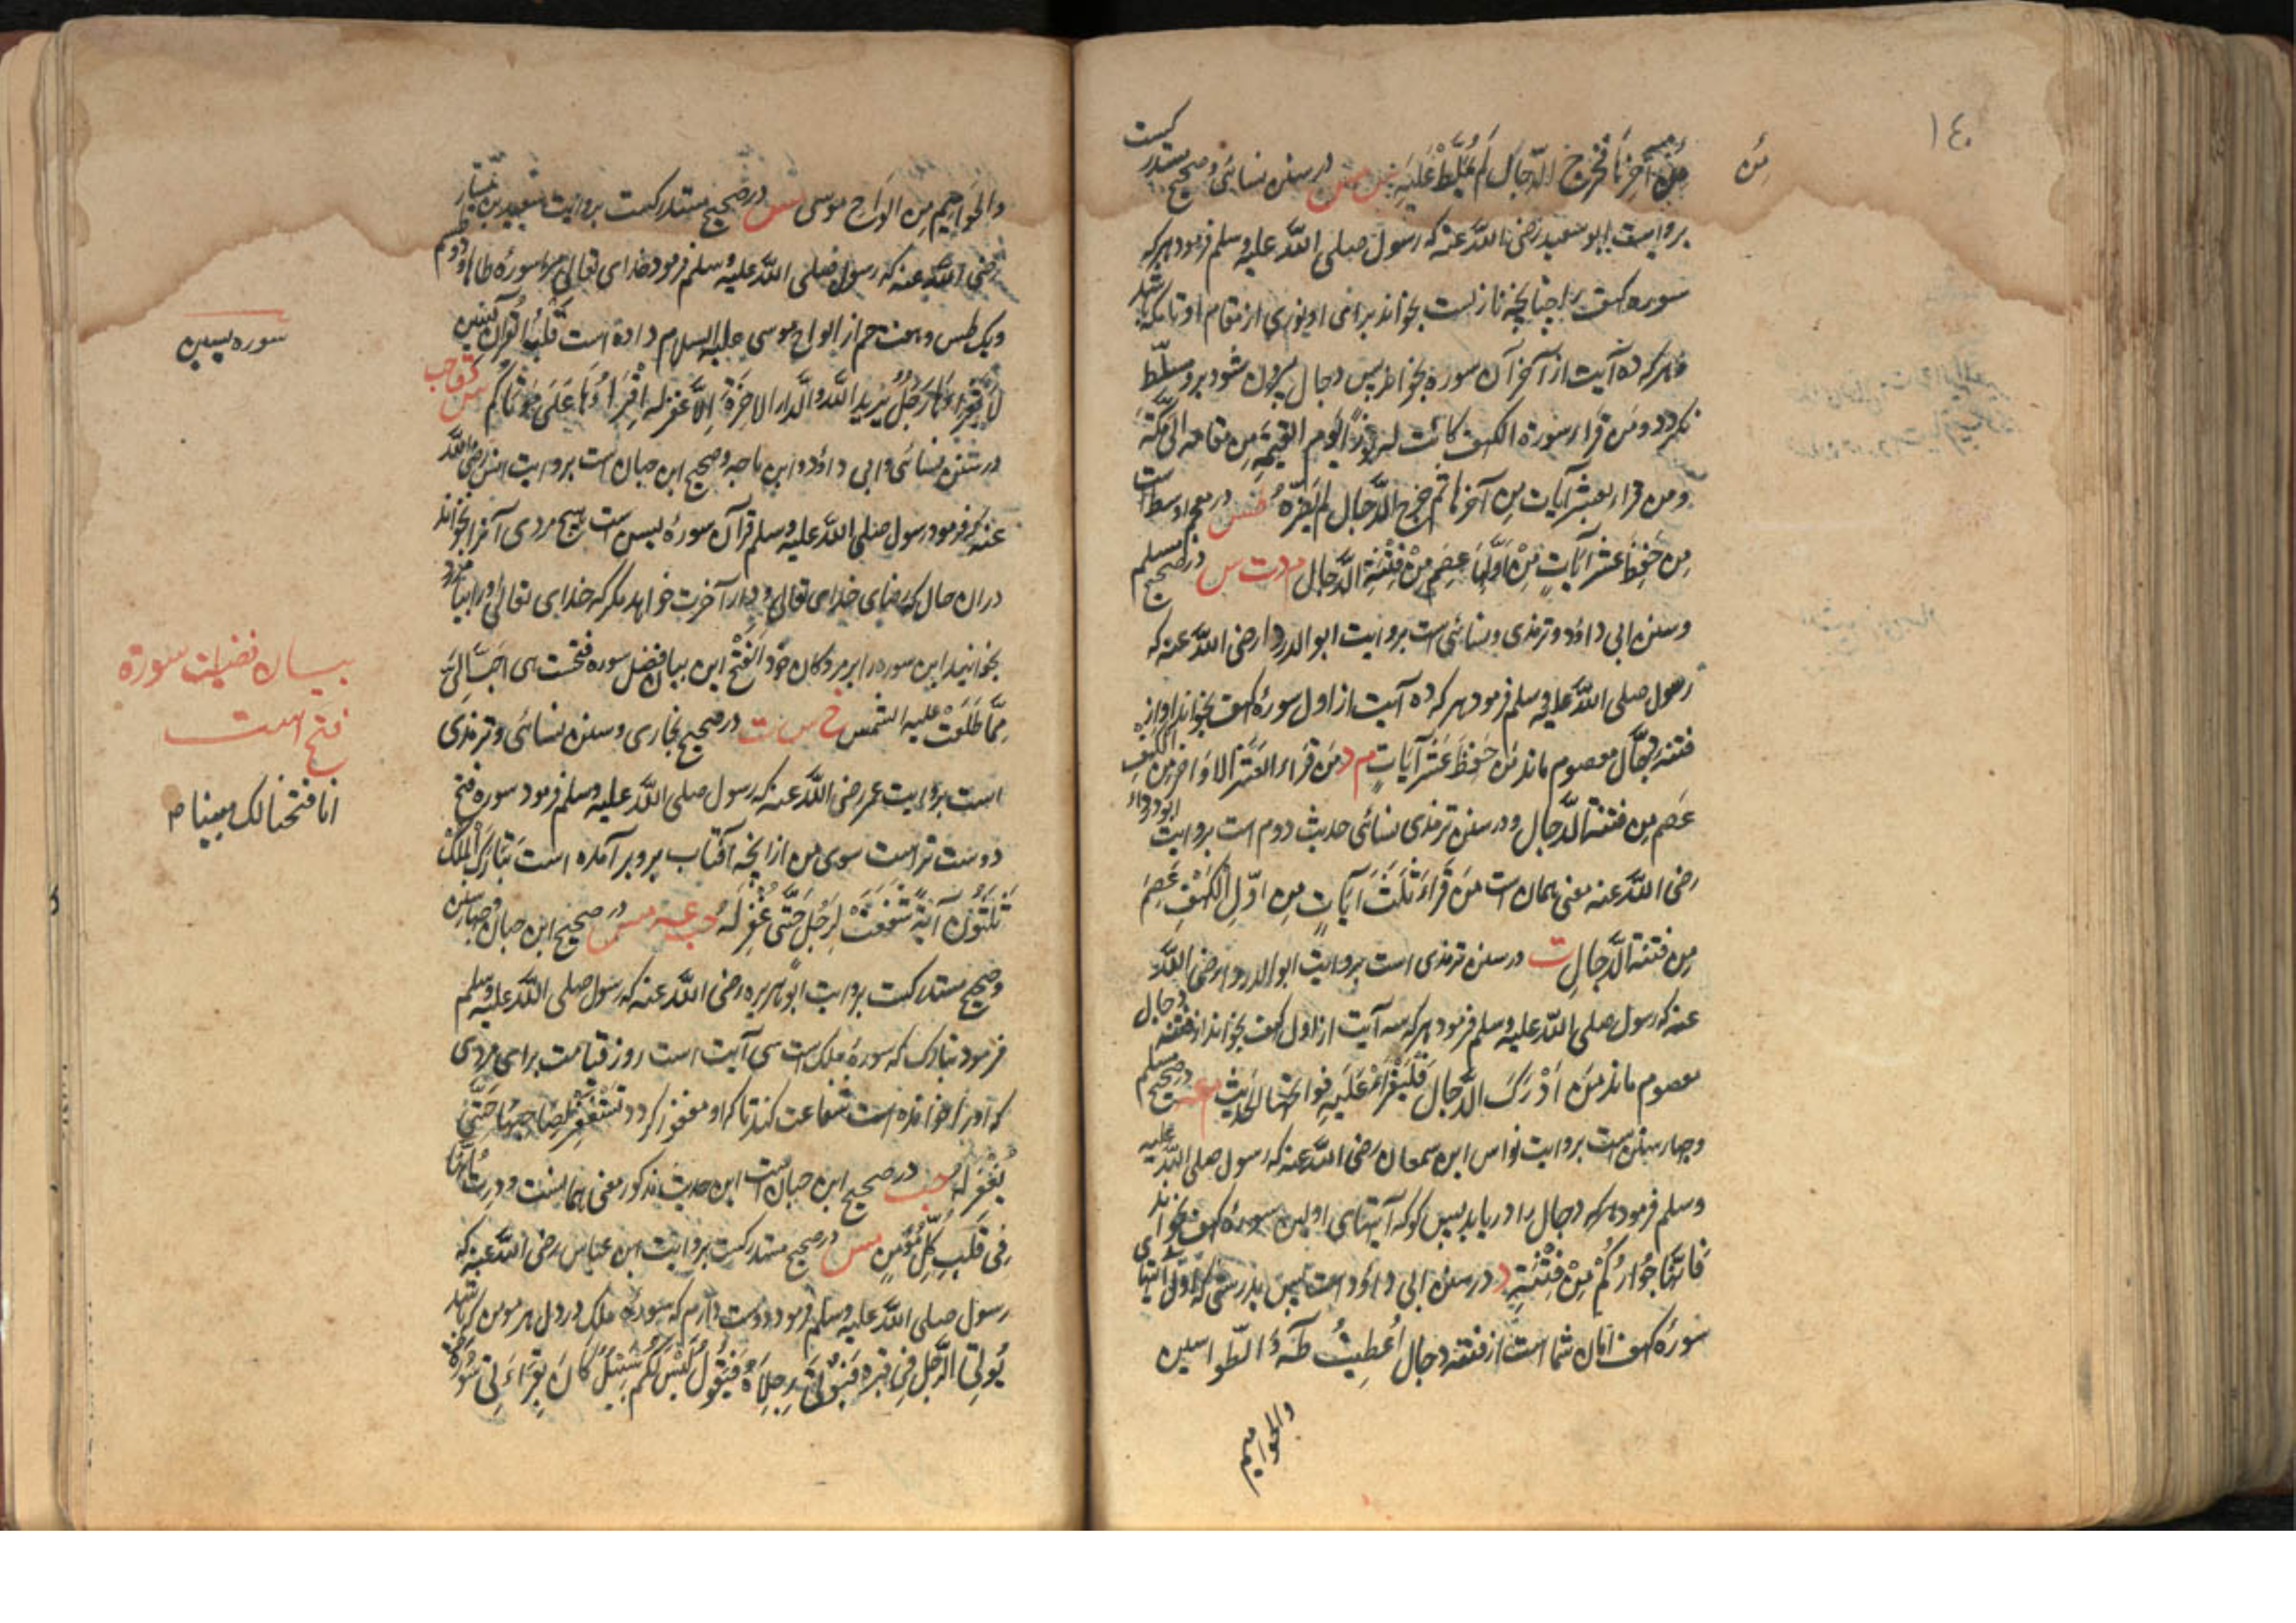 ١٤٠
من
من آخرها فخرج الدجال لم یسلط علیه س مس در سنن نسائی و صحیح مستدرکست
بروایت ابو سعید رضی الله عنه که رسول صلی الله علیه وسلم فرمود هر که
سوره کهف را چنانچه نازلست بخواند برای او نوری از مقام او تا مکه باشد
و هر که ده آیت از آخر آن سوره بخواند پس دجال بیرون شود برو مسلّط
نکردد و من قرا سورة الکهف کانت له نورًا یوم القیمة من مقامه الی مکة
و من قرا بعشر آیات من آخرها ثم خرج الدّجال لم یضرّه طس در معجم اوسط است
مِن حفظ عشر آیاتٍ مِنْ اَوّلها عصم مِنْ فِتْنَةِ الدَّجال م د ت س در صحیح مسلم
و سنن ابی داؤد و ترمذی و نسائی است بروایت ابو الدردا رضی الله عنه که
رسول صلی الله علیه وسلم فرمود هر که ده آیت از اول سورهٔ کهف بخواند او از
فتنه دجّال معصوم ماند مَن حَفِظَ عَشْرَ آیَاتٍ م د مَن قَرَاء العشر الاَوَاخر مِن الکهف
عَصم مِن فتنة الدّجال و در سنن ترمذی نسائی حدیث دوم است بروایت ابو درداء
رضی الله عنه معنی همان است مَن قَرَاءَ ثَلٰثَ آیَاتٍ مِن اوّلِ الکَهْفِ عُصِمَ
مِن فتنة الدّجالِ ت در سنن ترمذی است بروایت ابو الدردا رضی الله
عنه که رسول صلی الله علیه وسلم فرمود هر که سه آیت از اول کهف بخواند از فتنه دجال
معصوم ماند مَن اَدْرَکَ الدّجال فَلْیَقْرَاْ عَلَیهِ فواتحها الحدیث م عه در صحیح مسلم
و چهار سنن است بروایت نواس ابن سمعان رضی الله عنه که رسول صلی الله علیه
وسلم فرمود هر که دجال را دریابد پس کو که آیتهای اولین سورهٔ کهف بخواند
فَاِنّها جِوَارُکُمْ مِنْ فِتْنَتِهِ د در سنن ابی داؤد است پس بدرستی که اول آیتهای
سورهٔ کهف امان شما است از فتنه دجال اُعطیتُ طٰهٰ وَ الطّواسین
والحوامیم
والحوامیم مِن الوَاحِ موسی مس در صحیح مستدرکست بروایت یسار
رضی الله عنه که رسول صلی الله علیه وسلم فرمود خدای تعالی مرا سورهٔ طاها و دو طسم
و یک طس و هفت حم از الواح موسی علیه السلام داده است قَلْبُ القرآن یٰسین
لَا یقراءُها رَجُلٌ یُرِیدُ اللهَ وَالدّارَ الاخِرَةَ اِلّا غفر له اِقْرَاءُوهَا عَلَی مَوْتَاکم س د ق حب
در سنن نسائی و ابی داؤد و ابن ماجه و صحیح ابن حبان است بروایت رضی الله
عنه که فرمود رسول صلی الله علیه وسلم قرآن سورهٔ یٰس است هیچ مردی آنرا بخواند
دران حال که رضای خدای تعالی و دار آخرت خواهد مکر که خدای تعالی او را بیامرزد
بخوانید این سوره را بر مردکان خود الفَتْح این بیان فضل سوره فتحست هی احبّ اِلَیَّ
مِمَّا طَلَعَت علیه الشمس خ س ت در صحیح بخاری و سنن نسائی و ترمذی
است بروایت عمر رضی الله عنه که رسول صلی الله علیه وسلم فرمود سوره فتح
دوست تر است سوی من از انچه آفتاب برو بر آمده است تَبَارَکَ المُلْکُ
ثَلٰثُونَ آیَةً شَفَعَتْ لِرَجُلٍ حَتّٰی غُفِرَ لَهُ حب عه مس در صحیح ابن حبان و چهار سنن
و صحیح مستدرکست بروایت ابو هریره رضی الله عنه که رسول صلی الله علیه وسلم
فرمود تبارک که سورهٔ ملک است سی آیت است روز قیامت برای مردی
که او را خوانده است شفاعت کند تا که او مغفور کردد تَسْتَغْفِرُ لِصَاحِبِهَا حَتّٰی
یُغْفَرَ لَهُ حب در صحیح ابن حبان است این حدیث مذکور معنی همانست
فِی قَلْبِ کُلِّ مُؤْمِنٍ مس در صحیح مستدرکست بروایت ابن عباس رضی الله عنه که
رسول صلی الله علیه وسلم فرمود دوست دارم که سورهٔ ملک در دل هر مومن باشد
یُوتی الرَّجُل فِی قبره
سوره یٰسین
بیان فضیلت سورة
فتح است
انا فتحنا لک مبینا ۳